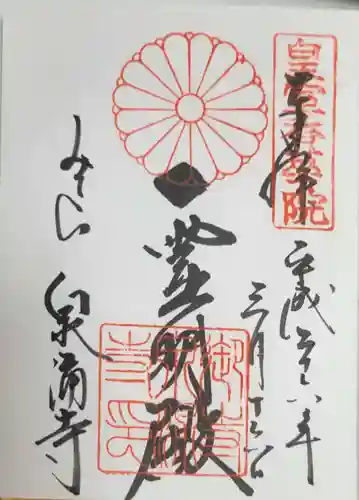 皇室香華院
奉拝
平成二十八年
三月
霊明殿
みてら
泉涌寺